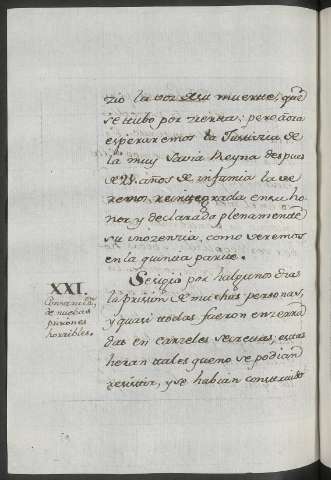 zio la voz de su muerte, que
se tubo por zierta: pero a ora
esperaremos la Justizia de
la muy Savia Reyna despues
de años de infamia la ve
remos reintegrada en su ho
nor y declarada plenamente
su inozenzia, como veremos
en la quinta parte.
XXI.
de nuebas
prisiones
horribles.
Seguio por halgunos dias
la prision de muchas personas,
y quasi todas fueron enzerra
das en carzeles secretas, estas
heran tales que no se podian
resistir, y se habian construido